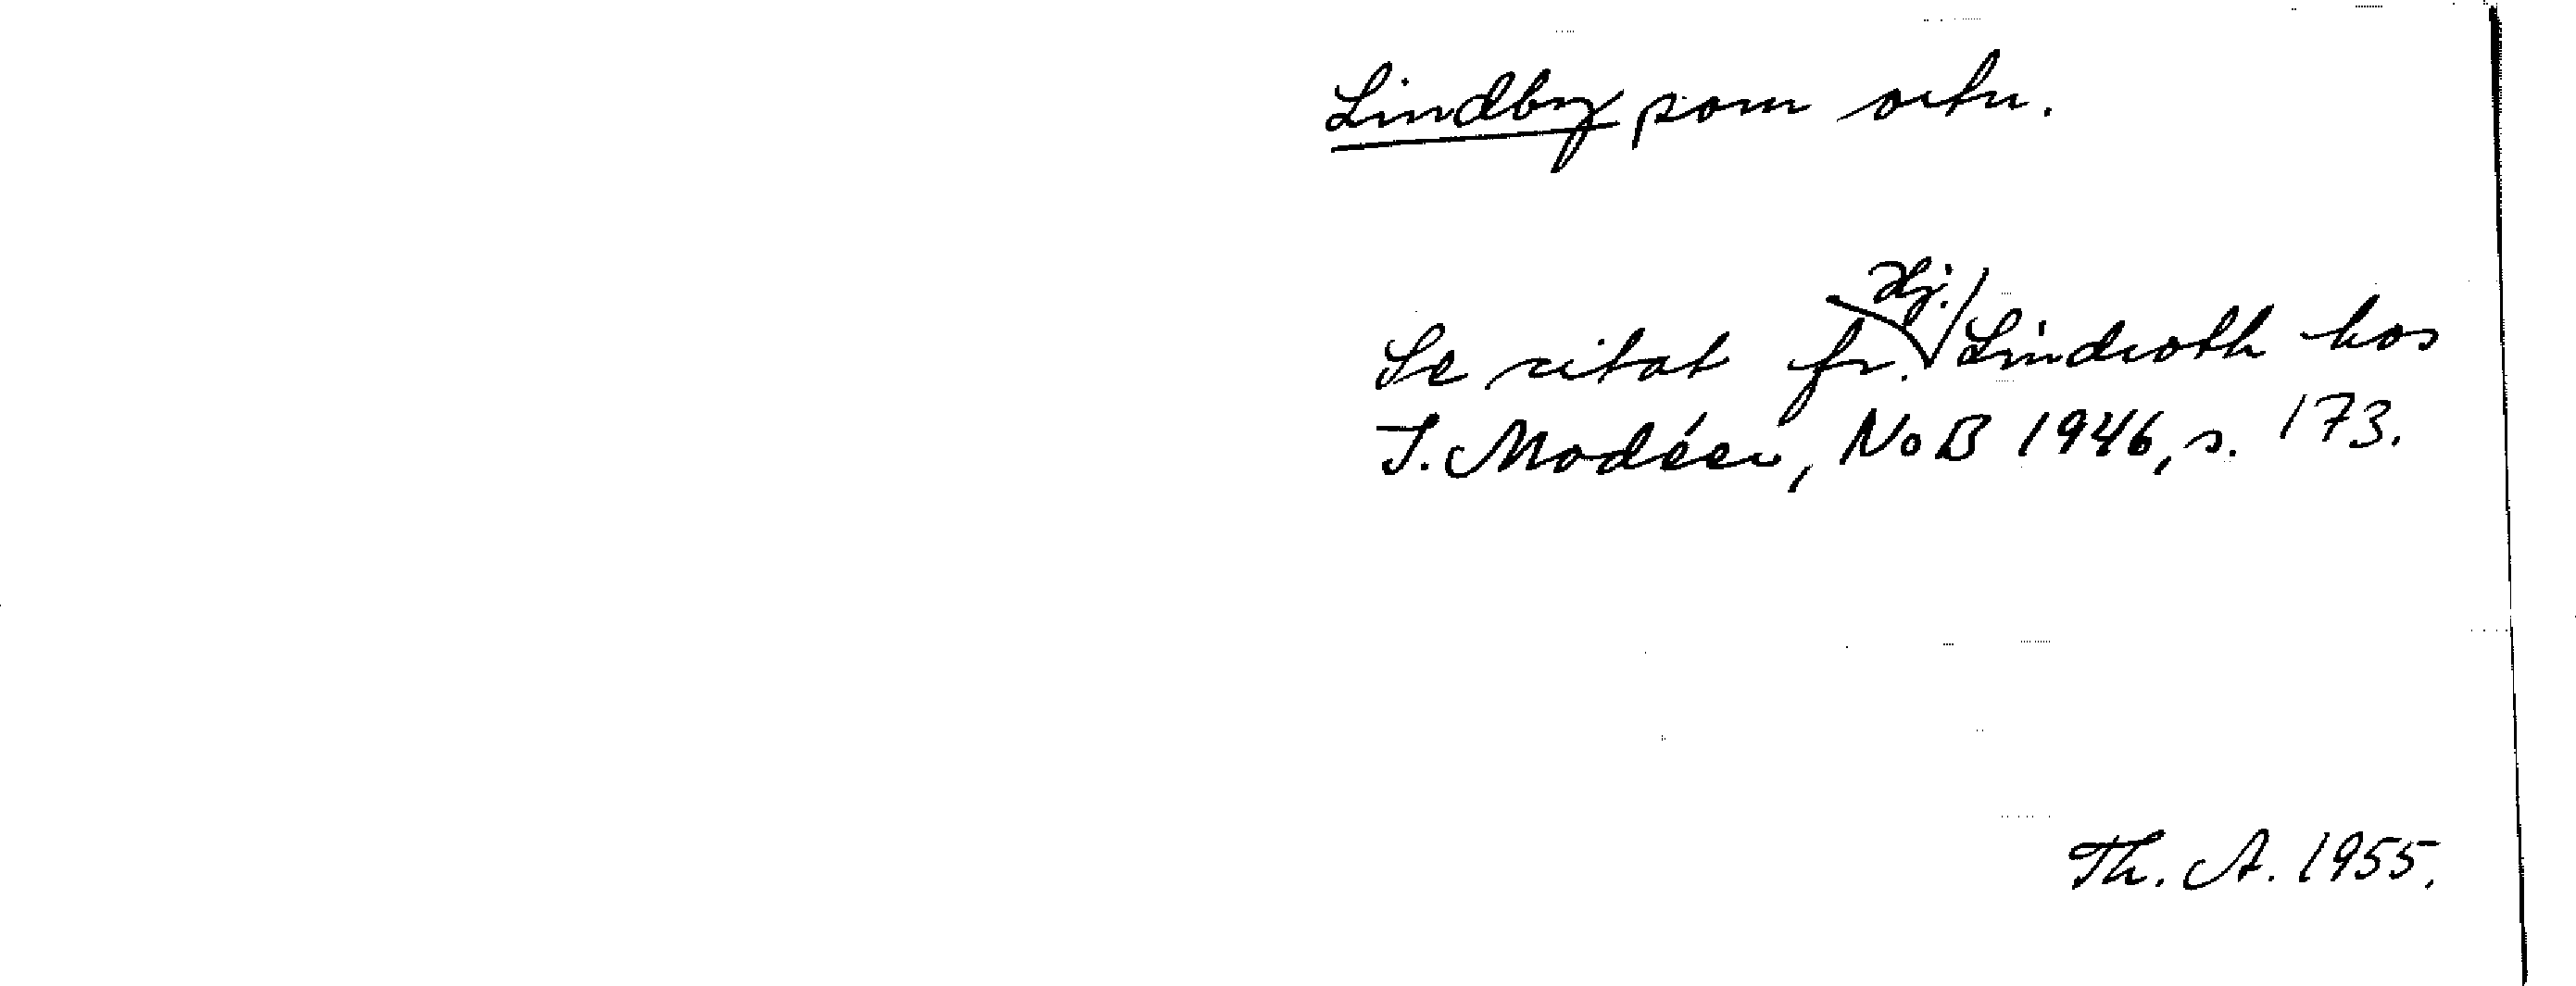 Lindby som ortn.
Se citat fr. Hj. Lindroth hos
I. Modéer, NoB 1946, s. 173.
Th. A. 1955.